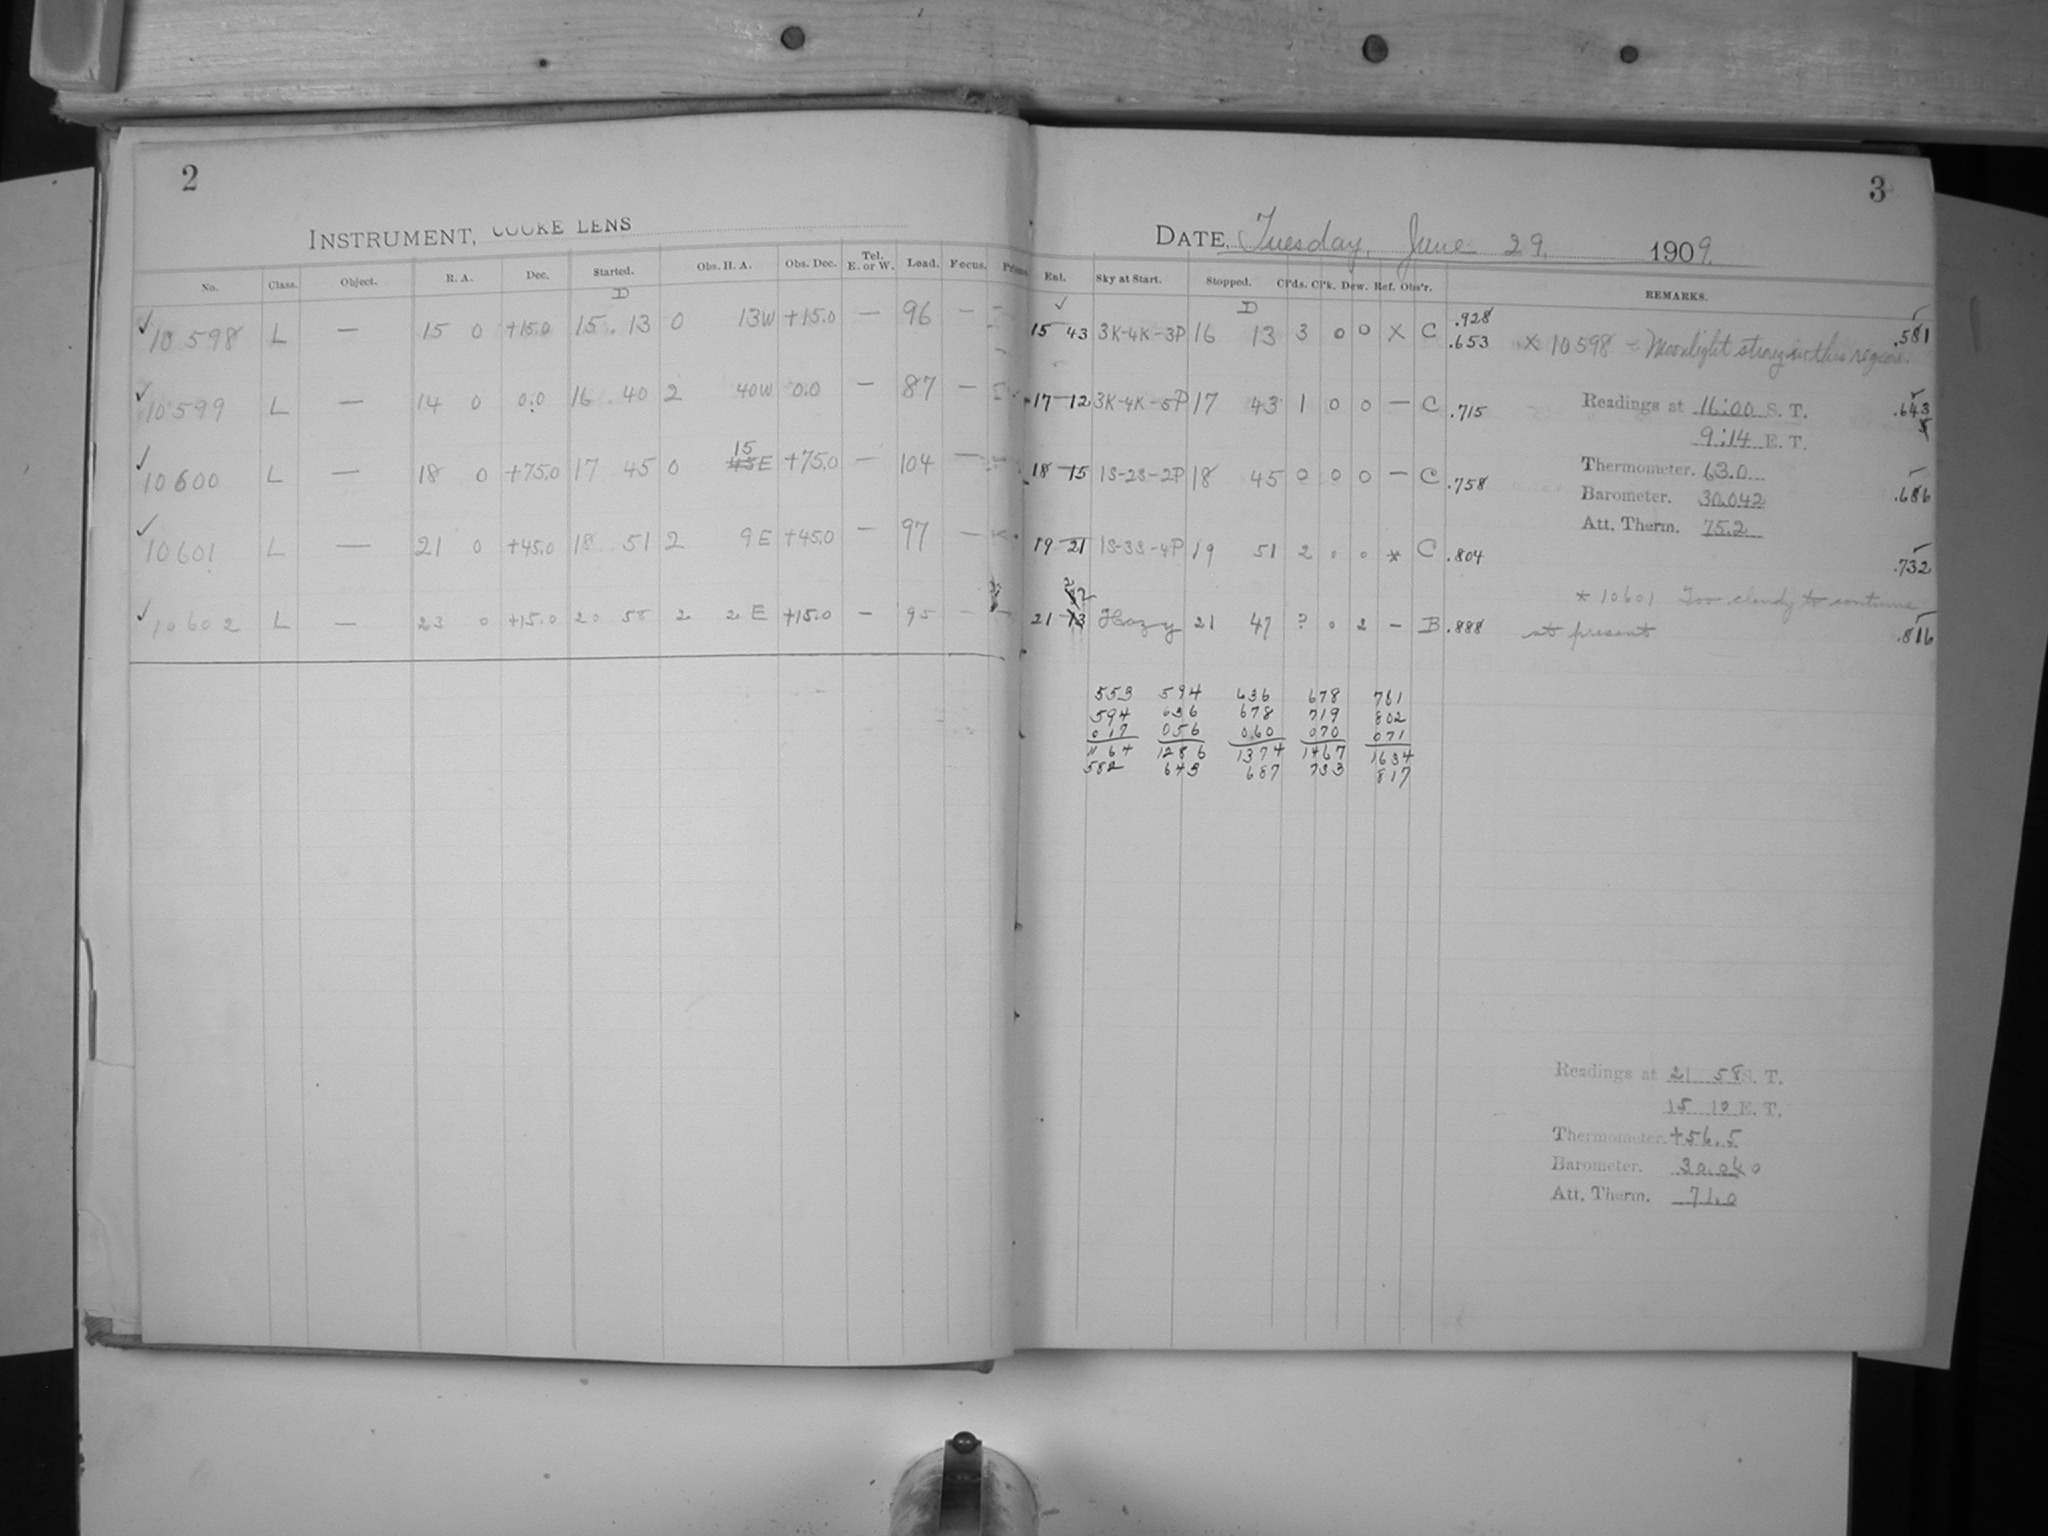 2
INSTRUMENT, COOKE LENS
No. Class. Object. R. A. Dec. Started. Obs. H. A. Obs. Dec. Tel. E. or W. Lead. Focus. Prisms.
D
✓ 10598 L — 15 0 +15.0 15 13 0 13W +15.0 — 96 —
✓ 10599 L — 14 0 0.0 16 40 2 40W 0.0 — 87 —
15
✓ 10600 L — 18 0 +75.0 17 45 0 45E +75.0 — 104 —
✓ 10601 L — 21 0 +45.0 18 51 2 9E +45.0 — 97 —
✓ 10602 L — 23 0 +15.0 20 58 2 2E +15.0 — 95 — —
3
DATE, Tuesday, June 29, 1909.
Ent. Sky at Start. Stopped. Cl'ds. Cl'k. Dew. Ref. Obs'r. REMARKS.
✓ D
.928
15 43 3K-4K-3P 16 13 3 0 0 X C .653 X 10598 - Moonlight strong in this region. .581
17-12 3K-4K-5P 17 43 1 0 0 — C .715 Readings at 16:00 S. T. .643
9:14 E. T.
Thermometer. 63.0
18-15 1S-2S-2P 18 45 0 0 0 — C .758 Barometer. 30.042 .686
Att. Therm. 75.2
19-21 1S-3S-4P 19 51 2 0 0 * C .804 .732
* 10601 Too cloudy to continue
21 13 Hazy 21 47 ? 0 2 — B .888 at present .816
553 594 636 678 761
594 636 678 719 802
017 056 060 070 071
1164 1286 1374 1467 1634
582 643 687 733 817
Readings at 21 58 S. T.
15 10 E. T.
Thermometer. +56.5
Barometer. 30.040
Att. Therm. 71.0